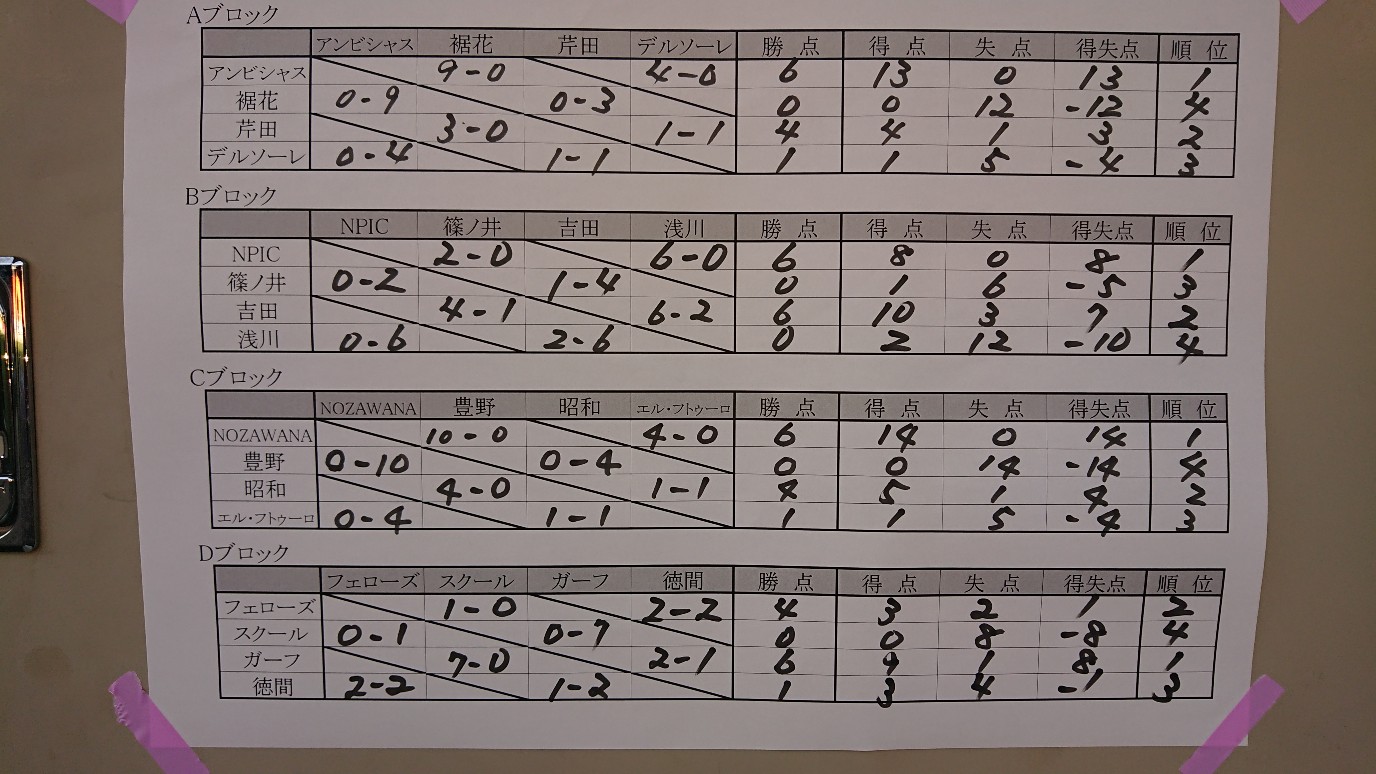 Aブロック
アンビシャス 裾花 芹田 デルソーレ 勝点 得点 失点 得失点 順位
アンビシャス 9-0 4-0 6 13 0 13 1
裾花 0-9 0-3 0 0 12 -12 4
芹田 3-0 1-1 4 4 1 3 2
デルソーレ 0-4 1-1 1 1 5 -4 3
Bブロック
NPIC 篠ノ井 吉田 浅川 勝点 得点 失点 得失点 順位
NPIC 2-0 6-0 6 8 0 8 1
篠ノ井 0-2 1-4 0 1 6 -5 3
吉田 4-1 6-2 6 10 3 7 2
浅川 0-6 2-6 0 2 12 -10 4
Cブロック
NOZAWANA 豊野 昭和 エル・フトゥーロ 勝点 得点 失点 得失点 順位
NOZAWANA 10-0 4-0 6 14 0 14 1
豊野 0-10 0-4 0 0 14 -14 4
昭和 4-0 1-1 4 5 1 4 2
エル・フトゥーロ 0-4 1-1 1 1 5 -4 3
Dブロック
フェローズ スクール ガーフ 徳間 勝点 得点 失点 得失点 順位
フェローズ 1-0 2-2 4 3 2 1 2
スクール 0-1 0-7 0 0 8 -8 4
ガーフ 7-0 2-1 6 9 1 8 1
徳間 2-2 1-2 1 3 4 -1 3